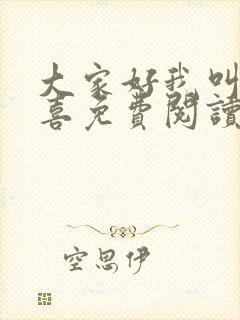 大家好我叫
喜免費閱讀
空思伊